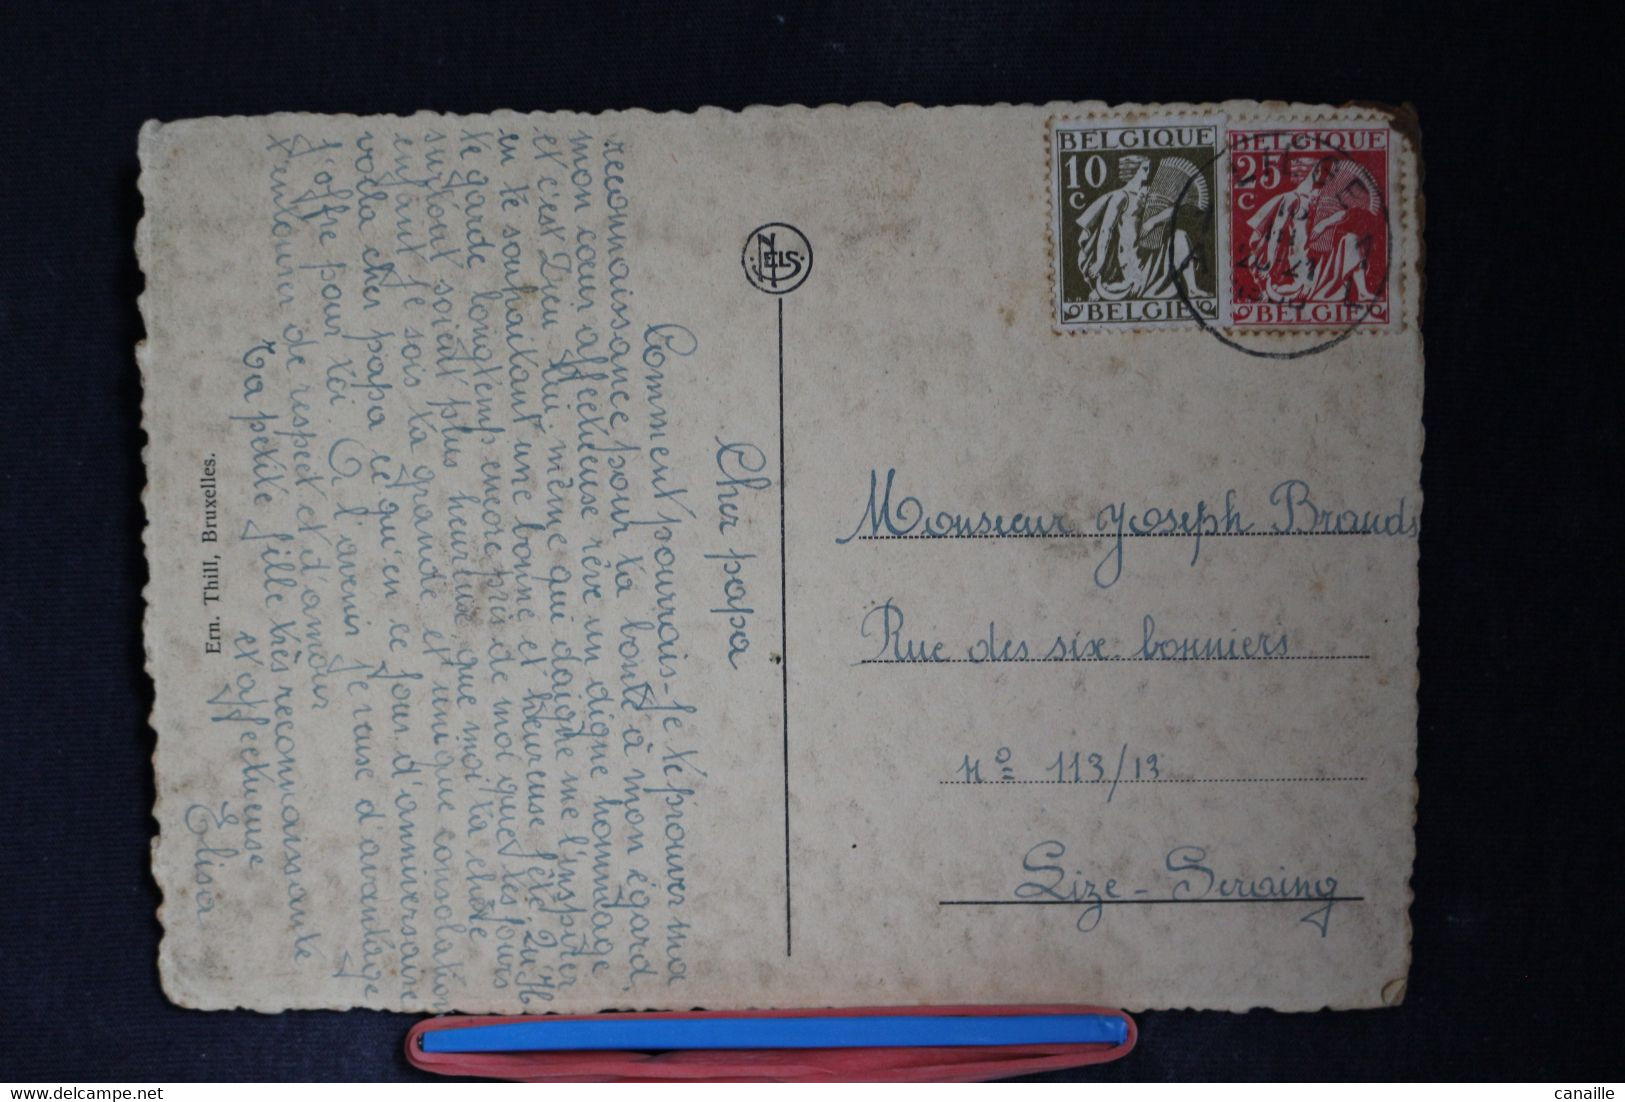 Cher papa
Comment pourrais-je te prouver ma
reconnaissance pour ta bonté à mon égard,
mon cœur affectueuse rêve un digne hommage
et c'est Dieu lui même qui daigne me l'inspirer
en te souhaitant une bonne et heureuse fête
te garde longtemp encore près de moi que tes jours
surtout soient plus heureuse que moi ta chère
enfant je sois ta grande et unique consolation
voila cher papa ce qu'en ce jour d'anniversaire
j'offre pour toi à l'avenir je veuse d'avantage
t'entourer de respect et d'amour
Ta petite fille très reconnaissante
et affectueuse
Elisa
Ern. Thill, Bruxelles.
NELS
BELGIQUE
10
C
BELGIE
BELGIQUE
25
C
BELGIE
Monsieur Joseph Brands
Rue des six bonniers
No 113/13
Lize-Seraing
canaille